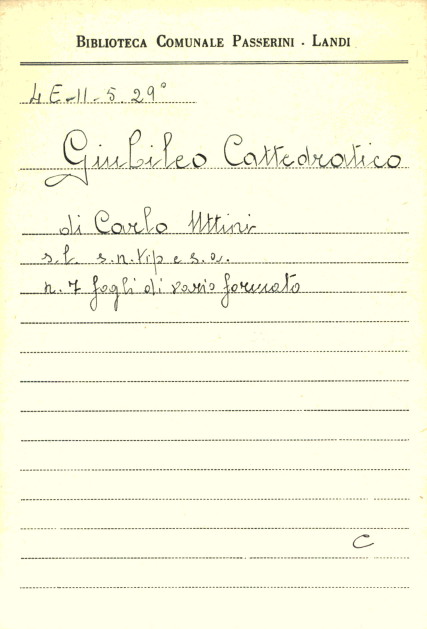 BIBLIOTECA COMUNALE PASSERINI - LANDI
4 E-II-5.29°
Giubileo Cattedratico
di Carlo Uttini
s.l. s.n.tip e s.a.
n. 7 fogli di vario formato
C